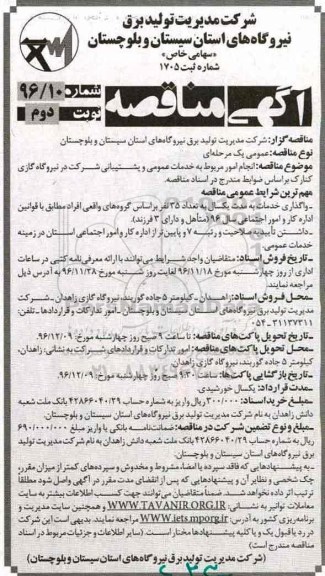 شرکت مدیریت تولید برق
نیروگاه‌های استان سیستان و بلوچستان
«سهامی خاص»
شماره ثبت ۱۷۰۵
آگهی مناقصه
شماره ۹۶/۱۰
نوبت دوم
مناقصه گزار: شرکت مدیریت تولید برق نیروگاه‌های استان سیستان و بلوچستان
نوع مناقصه: عمومی یک مرحله‌ای
موضوع مناقصه: انجام امور مربوط به خدمات عمومی و پشتیبانی شرکت در نیروگاه گازی
کنارک براساس ضوابط مندرج در اسناد مناقصه.
مهم ترین شرایط عمومی مناقصه
-واگذاری خدمات به مدت یک سال به تعداد ۳۵ نفر براساس گروه‌های واقعی افراد مطابق با قوانین
اداره کار و امور اجتماعی سال ۹۶ (متأهل و دارای ۳ فرزند).
-داشتن تأییدیه صلاحیت و رتبه ۷ و پایین تر از اداره کار و امور اجتماعی استان در زمینه
خدمات عمومی.
-تاریخ فروش اسناد: متقاضیان واجد شرایط می‌توانند با ارائه معرفی‌نامه کتبی در ساعات
اداری از روز چهارشنبه مورخ ۹۶/۱۱/۱۸ لغایت روز شنبه مورخ ۹۶/۱۱/۲۸ به آدرس ذیل
مراجعه نمایند.
-محل فروش اسناد: زاهدان - کیلومتر ۵ جاده گوربند، نیروگاه گازی زاهدان - شرکت
مدیریت تولید برق نیروگاه‌های استان سیستان و بلوچستان - امور تدارکات و قراردادها - تلفن:
۰۵۴-۳۱۱۳۷۳۱۱
-تاریخ تحویل پاکت‌های مناقصه: تا ساعت ۹ صبح روز چهارشنبه مورخ: ۹۶/۱۲/۰۹
-محل تحویل پاکت‌های مناقصه: امور تدارکات و قراردادهای شرکت به نشانی: زاهدان،
کیلومتر ۵ جاده گوربند، نیروگاه گازی زاهدان
-تاریخ بازگشایی پاکت‌ها: ساعت ۹:۳۰ صبح روز چهارشنبه مورخ: ۹۶/۱۲/۰۹
-مدت قرارداد: یکسال خورشیدی.
-مبلغ خرید اسناد: ۳۰۰/۰۰۰ ریال واریز به شماره حساب ۴۲۸۶۶۰۴۰/۲۹ بانک ملت شعبه
دانش زاهدان به نام شرکت مدیریت تولید برق نیروگاه‌های استان سیستان و بلوچستان.
-مبلغ و نوع تضمین شرکت در مناقصه: ضمانت‌نامه بانکی یا واریز مبلغ ۶۹۰/۰۰۰/۰۰۰
ریال به شماره حساب ۴۲۸۶۶۰۴۰/۲۹ بانک ملت شعبه دانش زاهدان به نام شرکت مدیریت تولید
برق نیروگاه‌های استان سیستان و بلوچستان.
-به پیشنهادهایی که فاقد سپرده یا امضاء، مشروط و مخدوش و سپرده‌های کمتر از میزان مقرر،
چک شخصی و نظایر آن و پیشنهادهایی که پس از انقضای مدت مقرر در آگهی واصل شود مطلقا
ترتیب اثر داده نخواهد شد. ضمناً متقاضیان می‌توانند جهت کسب اطلاعات بیشتر به سایت
معاملات توانیر به نشانی: WWW.TAVANIR.ORG.IR و همچنین سایت مدیریت و
برنامه‌ریزی کشور به آدرس: www.iets.mporg.ir مراجعه نمایند. بدیهی است این شرکت
در رد یا قبول یک و یا کلیه پیشنهادها مختار است. (سایر اطلاعات و جزئیات مربوط در اسناد
مناقصه مندرج است)
(شرکت مدیریت تولید برق نیروگاه‌های استان سیستان و بلوچستان)